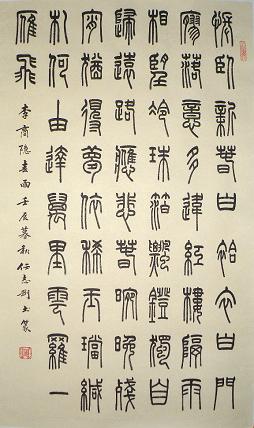 悵臥新春白袷衣白門
寥落意多違紅樓隔雨
相望冷珠箔飄鐙獨自
歸遠路應悲春晼晚殘
宵猶得夢依稀玉璫緘
札何由達萬里雲羅一
雁飛
李商隱春雨壬辰暮秋任志刚书篆